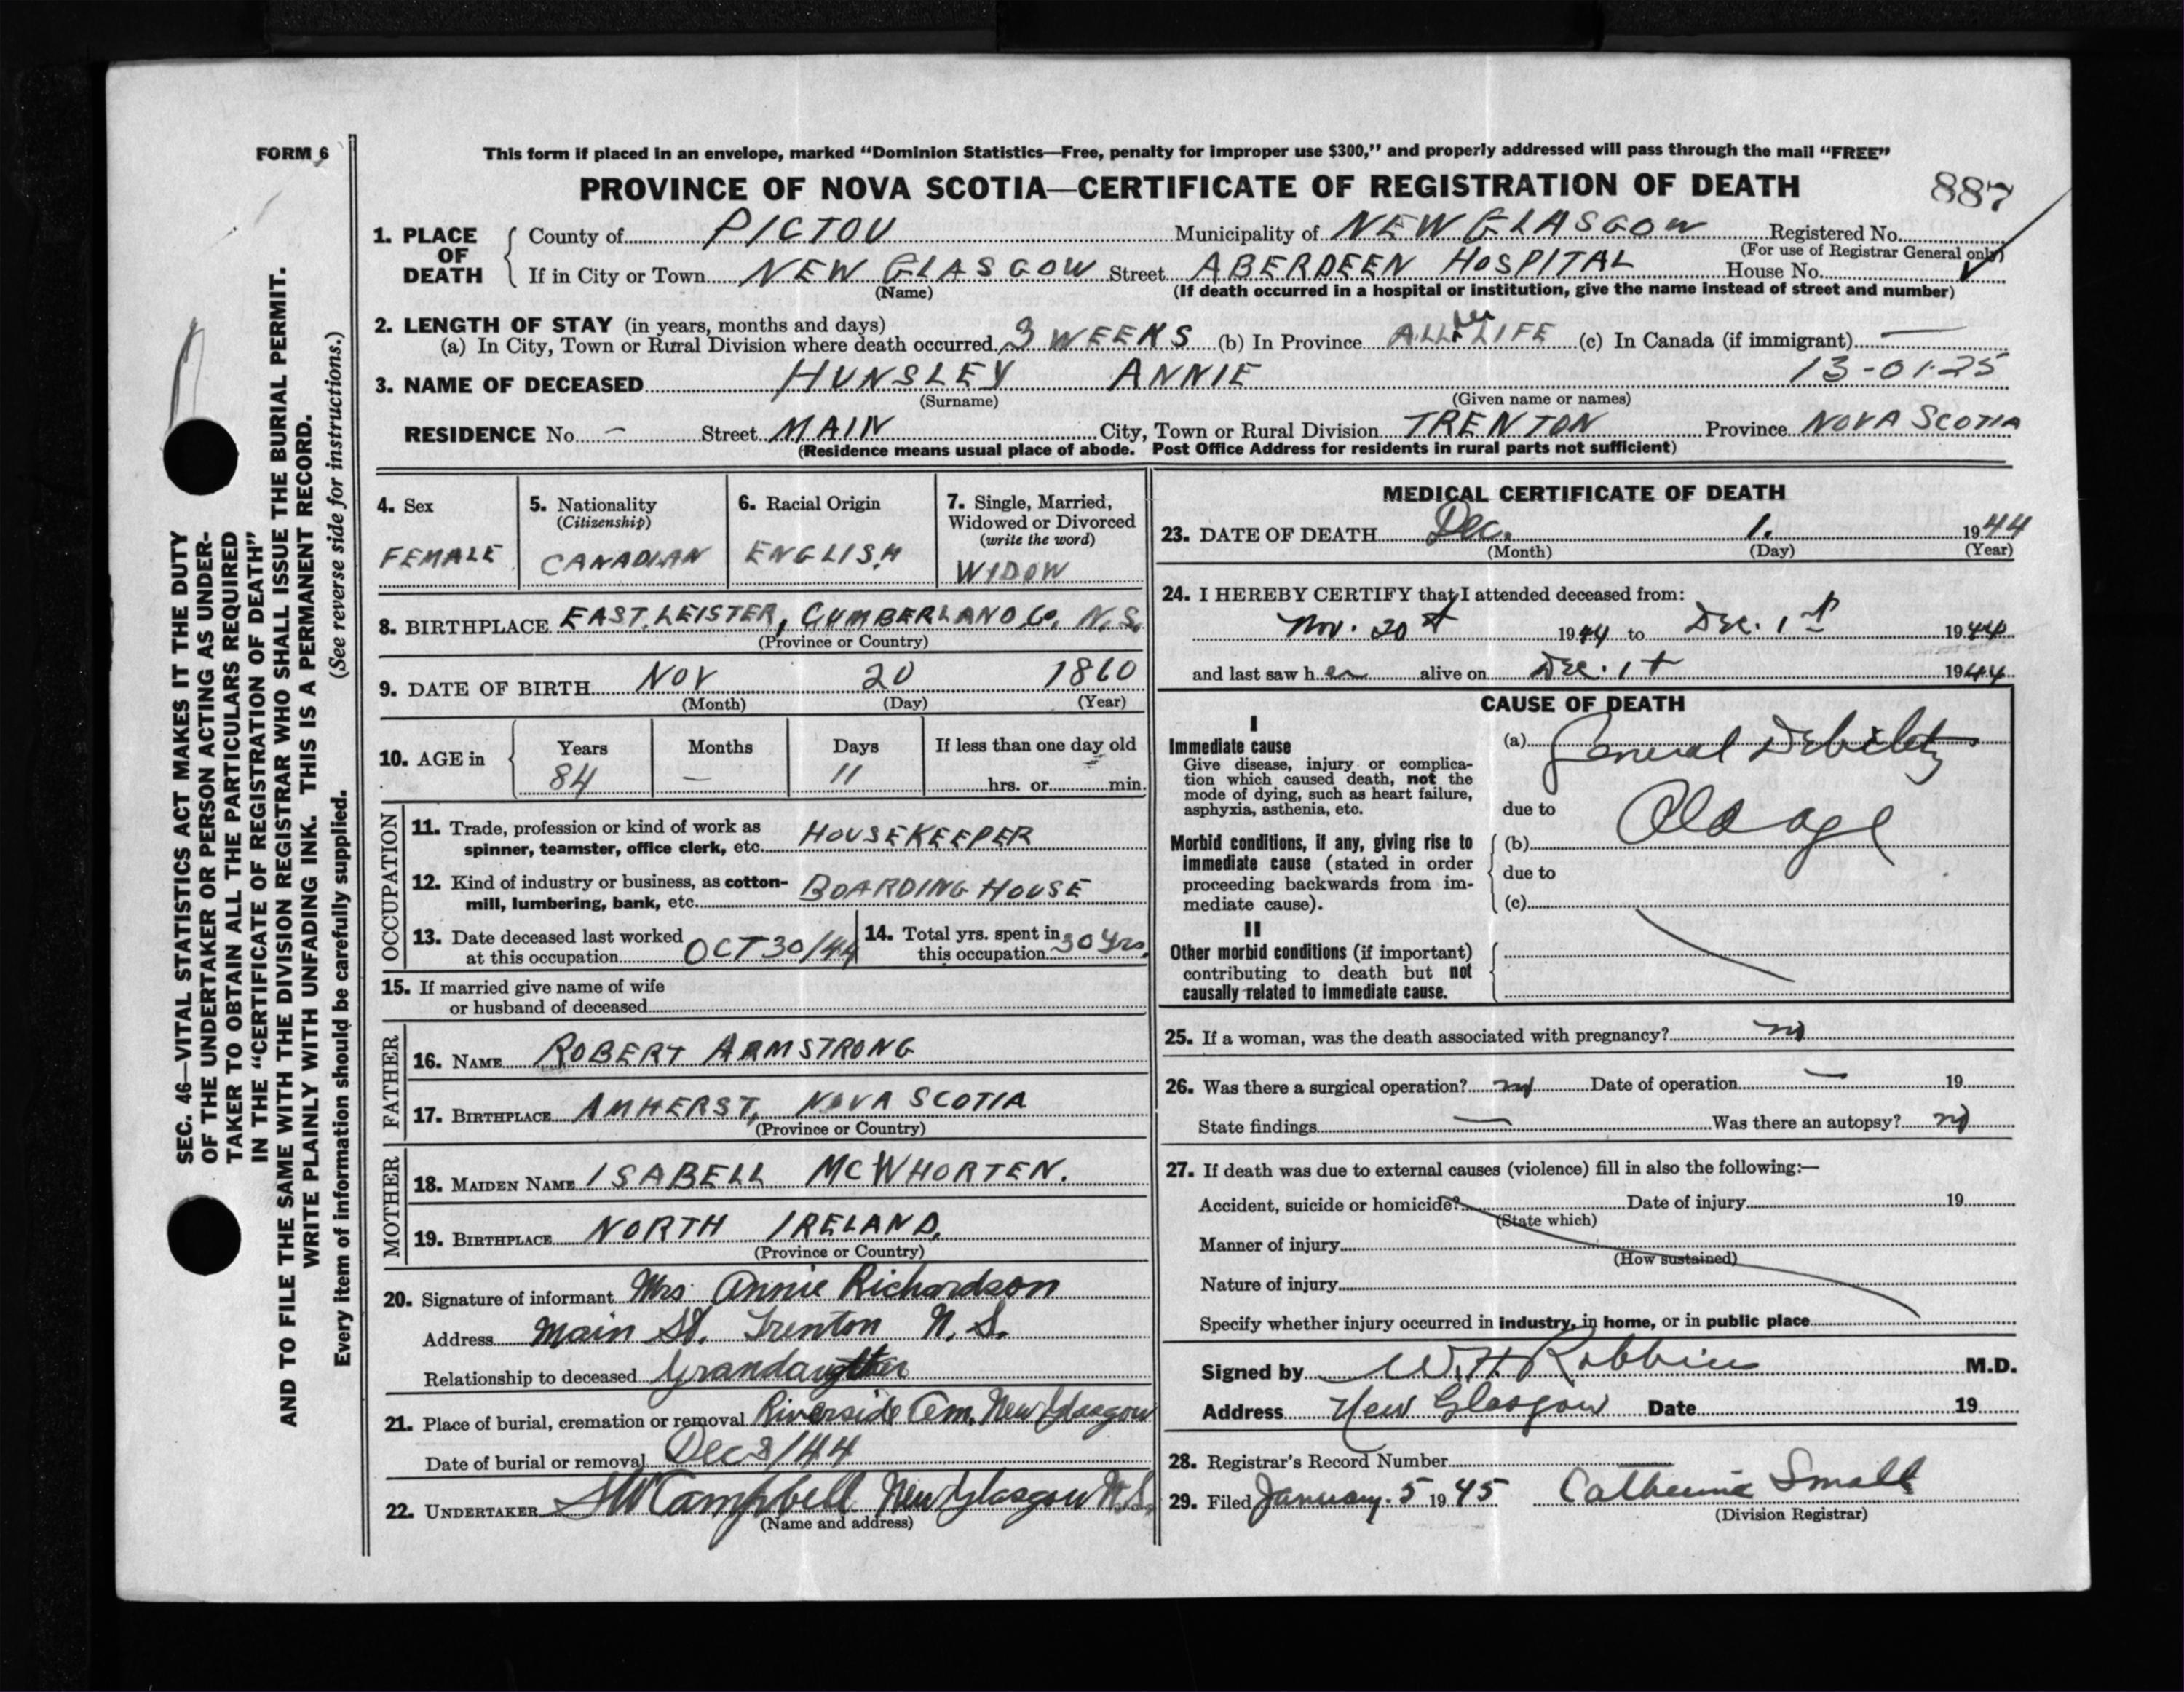 FORM 6
This form if placed in an envelope, marked “Dominion Statistics—Free, penalty for improper use $300,” and properly addressed will pass through the mail “FREE”
PROVINCE OF NOVA SCOTIA—CERTIFICATE OF REGISTRATION OF DEATH
887
1. PLACE OF DEATH
County of PICTOU Municipality of NEW GLASGOW Registered No.
(For use of Registrar General only)
If in City or Town NEW GLASGOW Street ABERDEEN HOSPITAL House No.
(Name) (If death occurred in a hospital or institution, give the name instead of street and number)
2. LENGTH OF STAY (in years, months and days)
(a) In City, Town or Rural Division where death occurred 3 WEEKS (b) In Province ALL LIFE (c) In Canada (if immigrant) —
3. NAME OF DECEASED HUNSLEY ANNIE 13-01-25
(Surname) (Given name or names)
RESIDENCE No. — Street MAIN City, Town or Rural Division TRENTON Province NOVA SCOTIA
(Residence means usual place of abode. Post Office Address for residents in rural parts not sufficient)
4. Sex
FEMALE
5. Nationality
(Citizenship)
CANADIAN
6. Racial Origin
ENGLISH
7. Single, Married,
Widowed or Divorced
(write the word)
WIDOW
8. BIRTHPLACE EAST LEISTER, CUMBERLAND Co. N.S.
(Province or Country)
9. DATE OF BIRTH NOV 20 1860
(Month) (Day) (Year)
10. AGE in
Years Months Days If less than one day old
84 — 11 hrs. or min.
OCCUPATION
11. Trade, profession or kind of work as
spinner, teamster, office clerk, etc. HOUSEKEEPER
12. Kind of industry or business, as cotton-
mill, lumbering, bank, etc. BOARDING HOUSE
13. Date deceased last worked
at this occupation OCT 30/44
14. Total yrs. spent in
this occupation 30 yrs.
15. If married give name of wife
or husband of deceased
FATHER
16. NAME ROBERT ARMSTRONG
17. BIRTHPLACE AMHERST, NOVA SCOTIA
(Province or Country)
MOTHER
18. MAIDEN NAME ISABELL MCWHORTEN.
19. BIRTHPLACE NORTH IRELAND.
(Province or Country)
20. Signature of informant Mrs Annie Richardson
Address Main St. Trenton N.S.
Relationship to deceased Grandaughter
21. Place of burial, cremation or removal Riverside Cem. New Glasgow
Date of burial or removal Dec 3/44
22. UNDERTAKER Campbell New Glasgow N.S.
(Name and address)
MEDICAL CERTIFICATE OF DEATH
23. DATE OF DEATH Dec. 1. 1944
(Month) (Day) (Year)
24. I HEREBY CERTIFY that I attended deceased from:
Nov. 20th 1944 to Dec. 1st 1944
and last saw her alive on Dec. 1st 1944
CAUSE OF DEATH
I
Immediate cause
Give disease, injury or complica-
tion which caused death, not the
mode of dying, such as heart failure,
asphyxia, asthenia, etc.
(a) General Debility
due to
Morbid conditions, if any, giving rise to
immediate cause (stated in order
proceeding backwards from im-
mediate cause).
(b) Old age
due to
(c)
II
Other morbid conditions (if important)
contributing to death but not
causally related to immediate cause.
25. If a woman, was the death associated with pregnancy? no
26. Was there a surgical operation? no Date of operation — 19
State findings — Was there an autopsy? no
27. If death was due to external causes (violence) fill in also the following:—
Accident, suicide or homicide? Date of injury 19
(State which)
Manner of injury
(How sustained)
Nature of injury
Specify whether injury occurred in industry, in home, or in public place
Signed by W.H. Robbins M.D.
Address New Glasgow Date 19
28. Registrar's Record Number
29. Filed January. 5 1945 Catherine Small
(Division Registrar)
SEC. 46—VITAL STATISTICS ACT MAKES IT THE DUTY
OF THE UNDERTAKER OR PERSON ACTING AS UNDER-
TAKER TO OBTAIN ALL THE PARTICULARS REQUIRED
IN THE “CERTIFICATE OF REGISTRATION OF DEATH”
AND TO FILE THE SAME WITH THE DIVISION REGISTRAR WHO SHALL ISSUE THE BURIAL PERMIT.
WRITE PLAINLY WITH UNFADING INK. THIS IS A PERMANENT RECORD.
Every item of information should be carefully supplied. (See reverse side for instructions.)